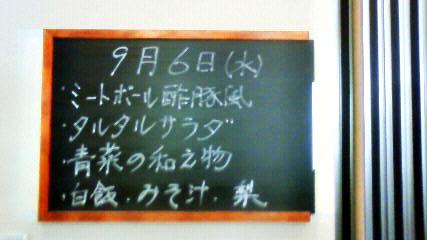 9月6日(水)
・ミートボール酢豚風
・タルタルサラダ
・青菜の和え物
・白飯・みそ汁・梨